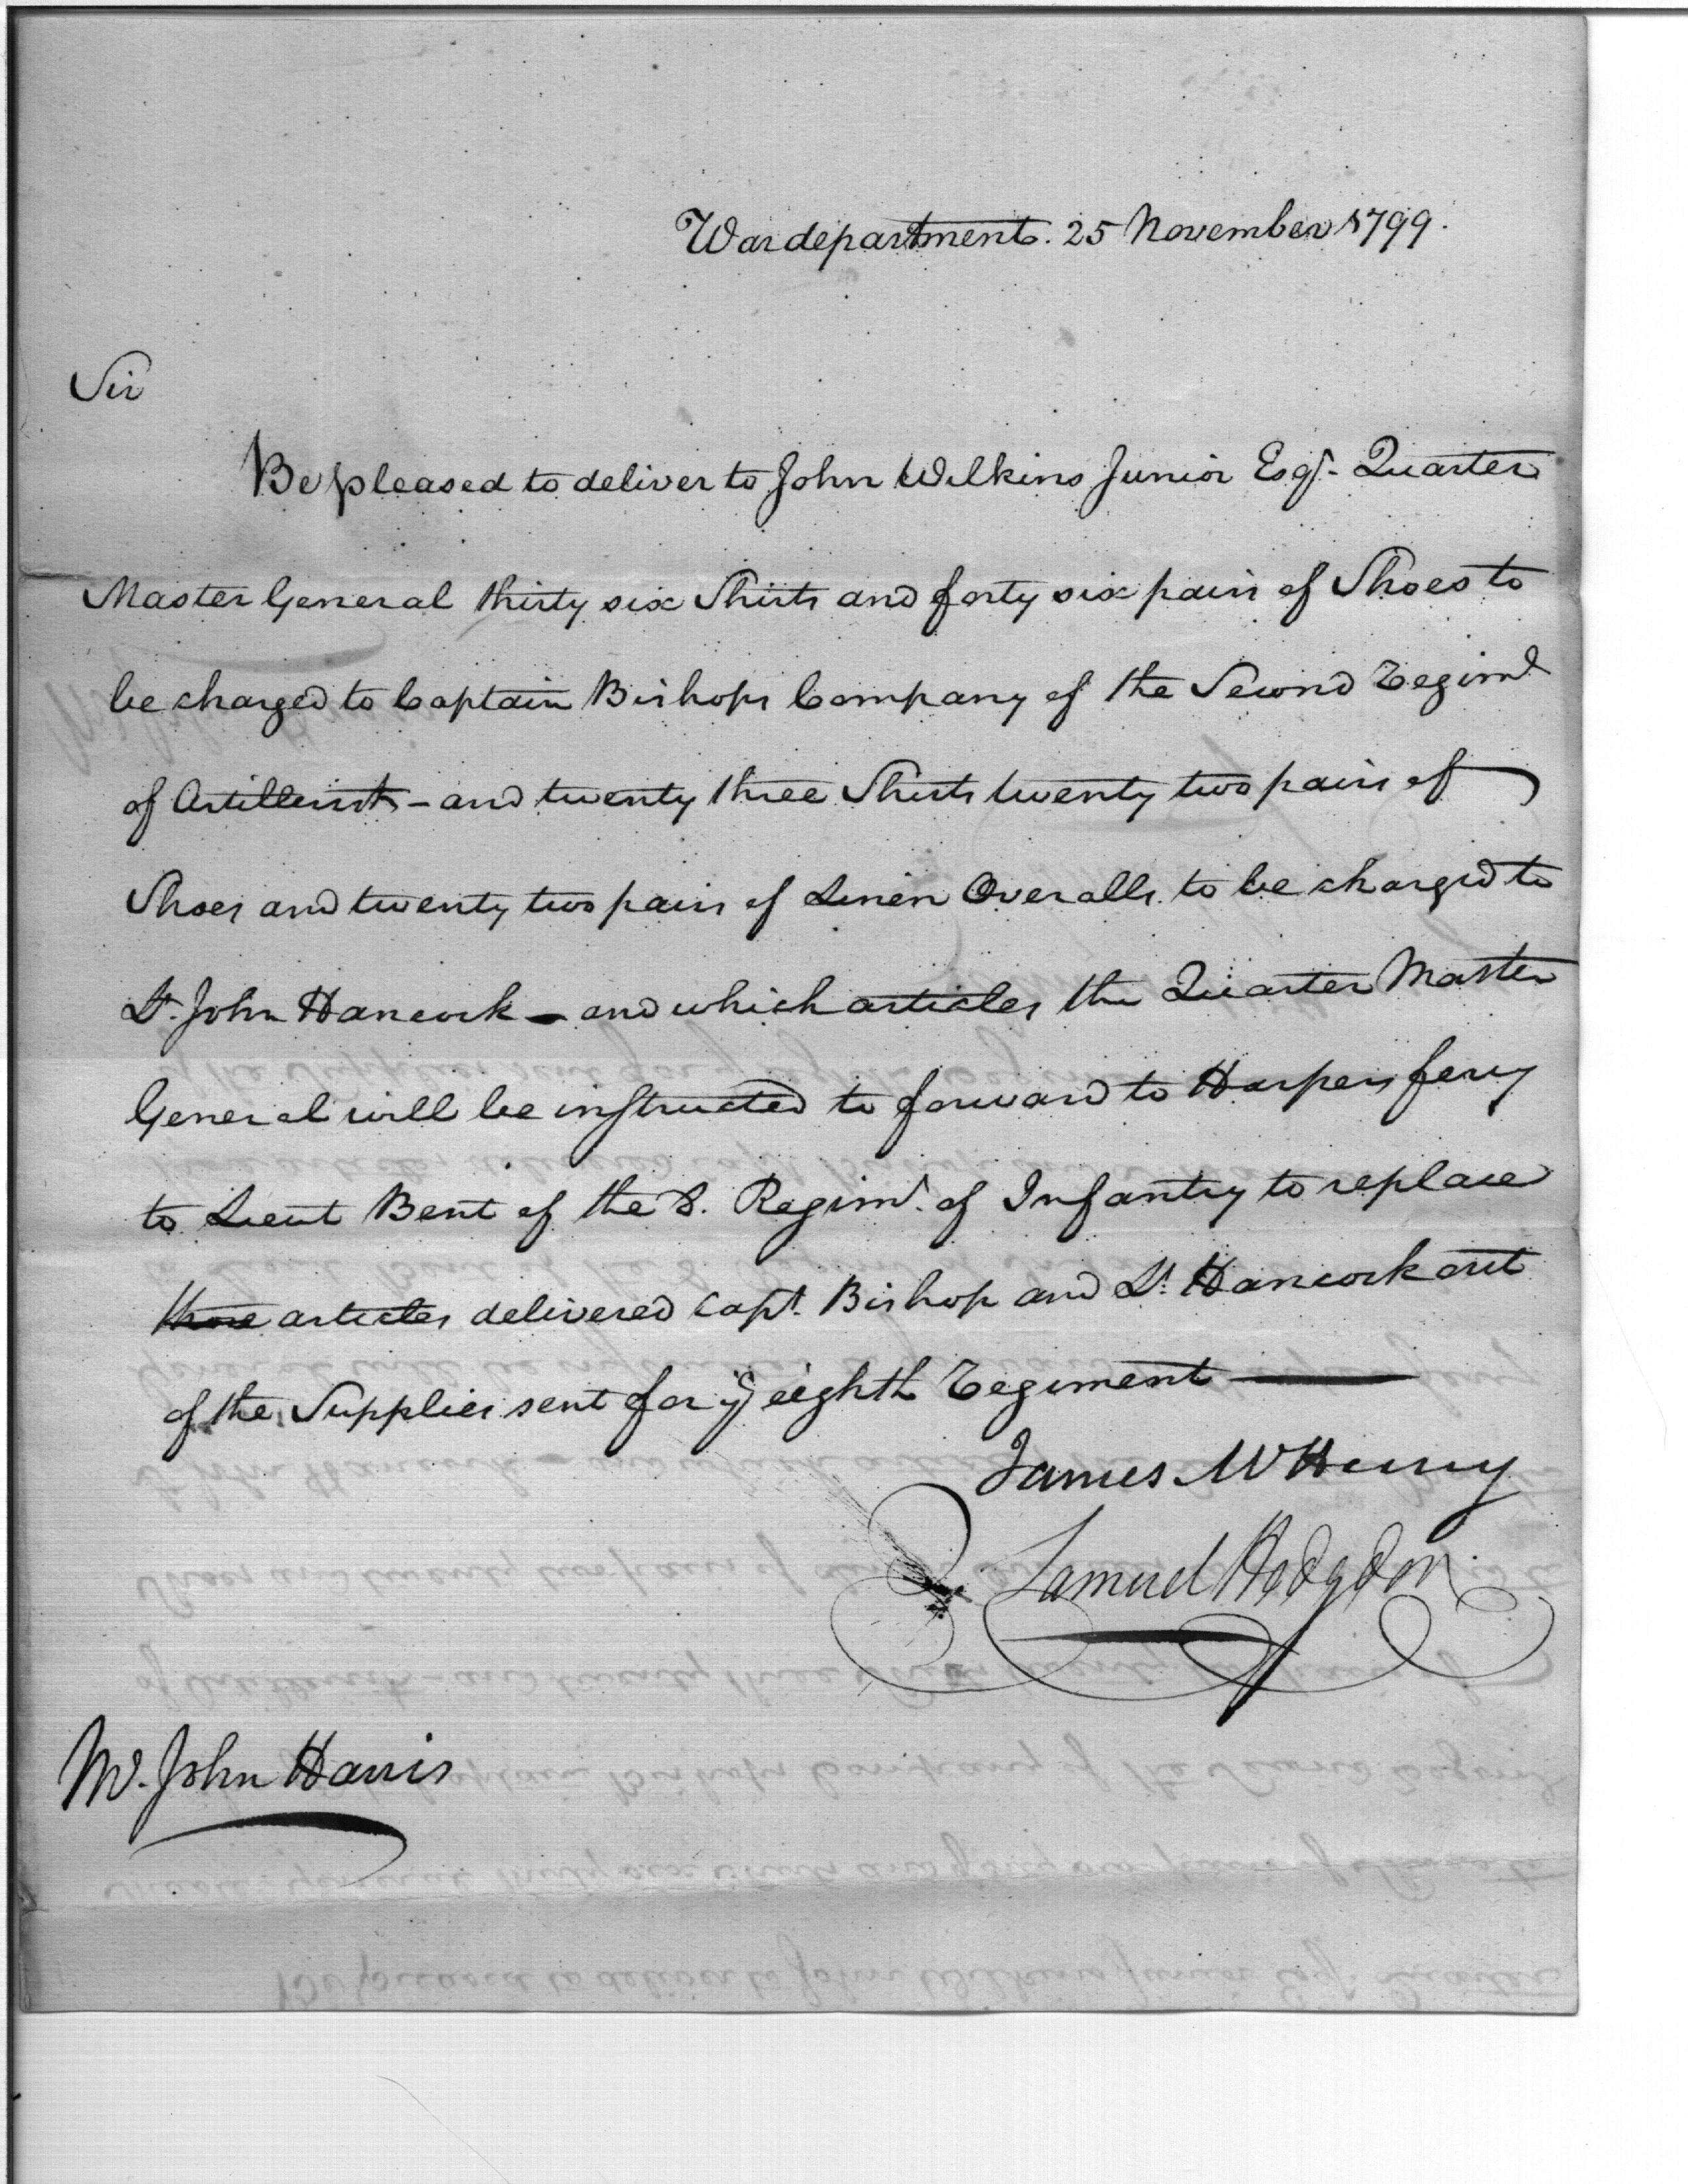 War department. 25 November 1799.
Sir
Be pleased to deliver to John Wilkins Junior Esqr. Quarter
Master General thirty six Shirts and forty six pairs of Shoes to
be charged to Captain Bishops Company of the Second Regimt
of Artillerists - and twenty three Shirts twenty two pairs of
Shoes and twenty two pairs of Linen Overalls to be charged to
Lt. John Hancock - and which articles the Quarter Master
General will be instructed to forward to Harpers ferry
to Lieut Bent of the 8. Regimt. of Infantry to replace
those articles delivered Capt. Bishop and Lt. Hancock out
of the Supplies sent for ye eighth Regiment
James McHenry
Samuel Hodgdon
Mr. John Harris